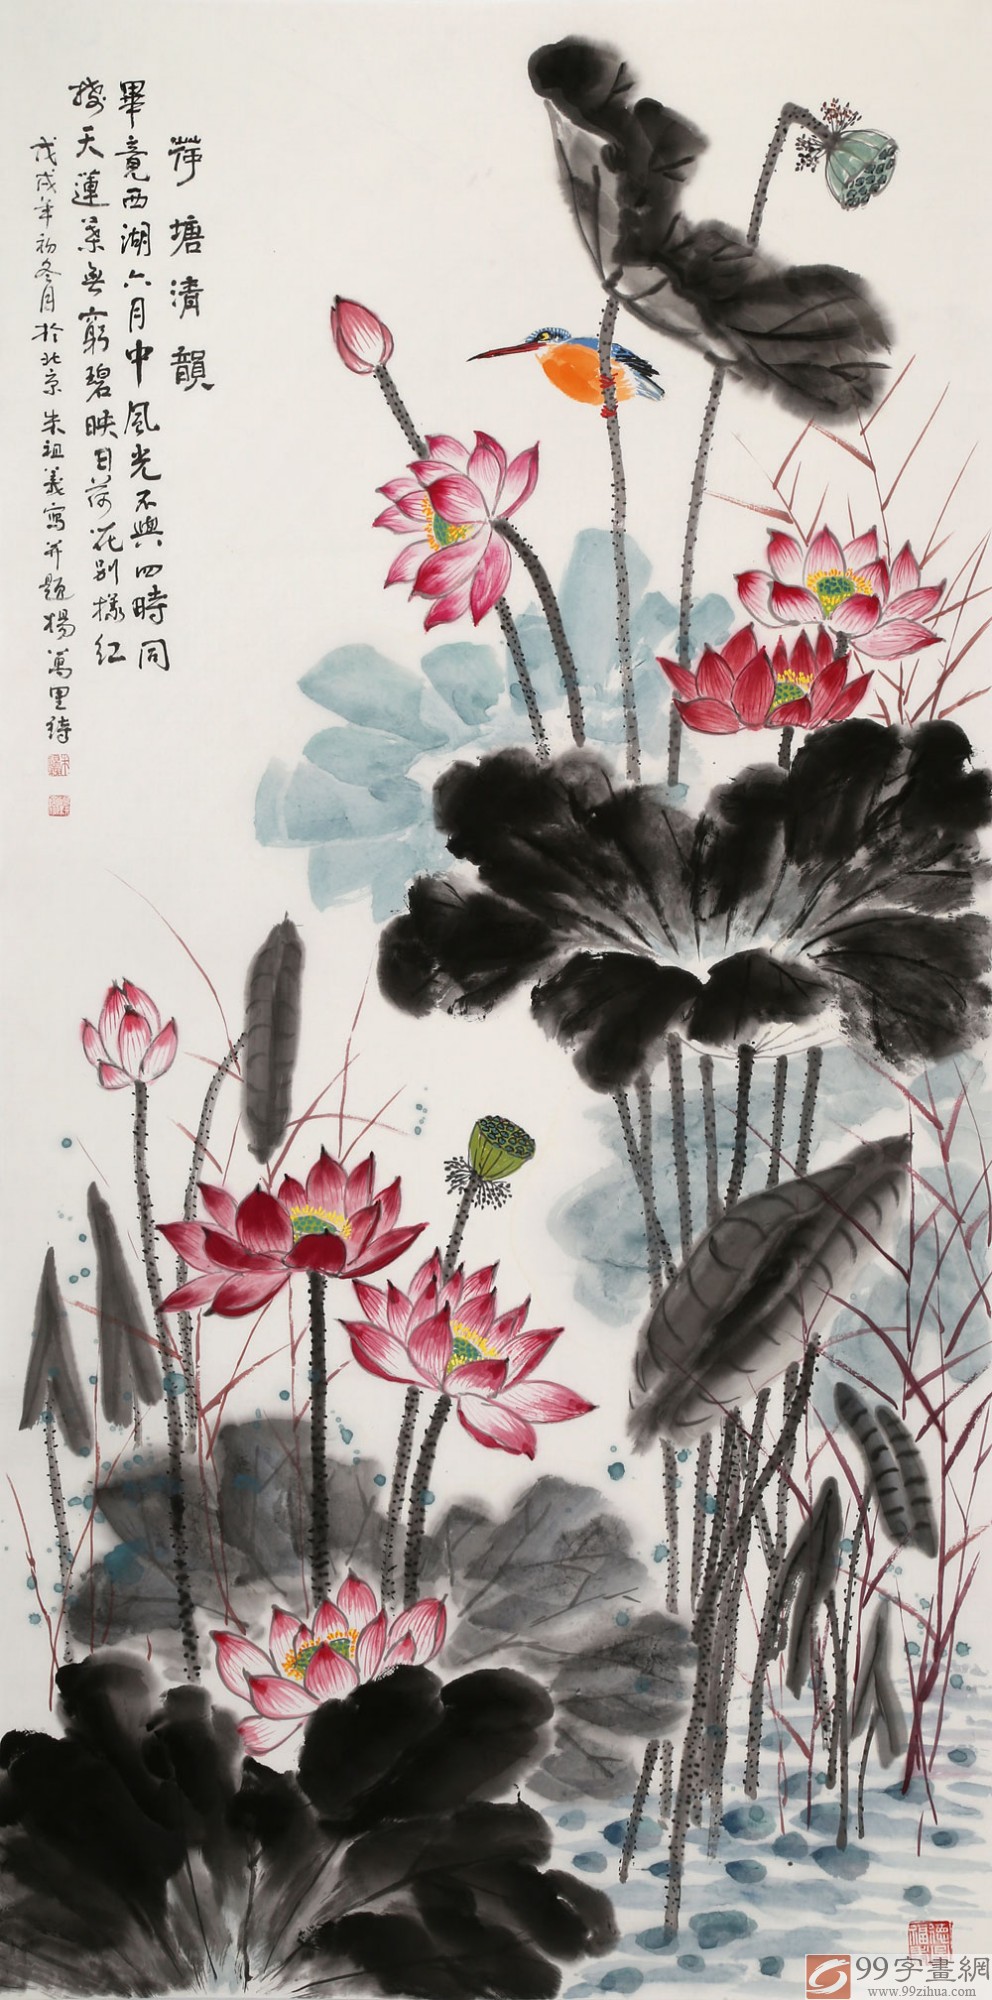 荷塘清韻
畢竟西湖六月中風光不與四時同
接天蓮葉無窮碧映日荷花別樣紅
戊戌年初冬月於北京朱祖義寫并題楊萬里詩
99字畫網
www.99zihua.com